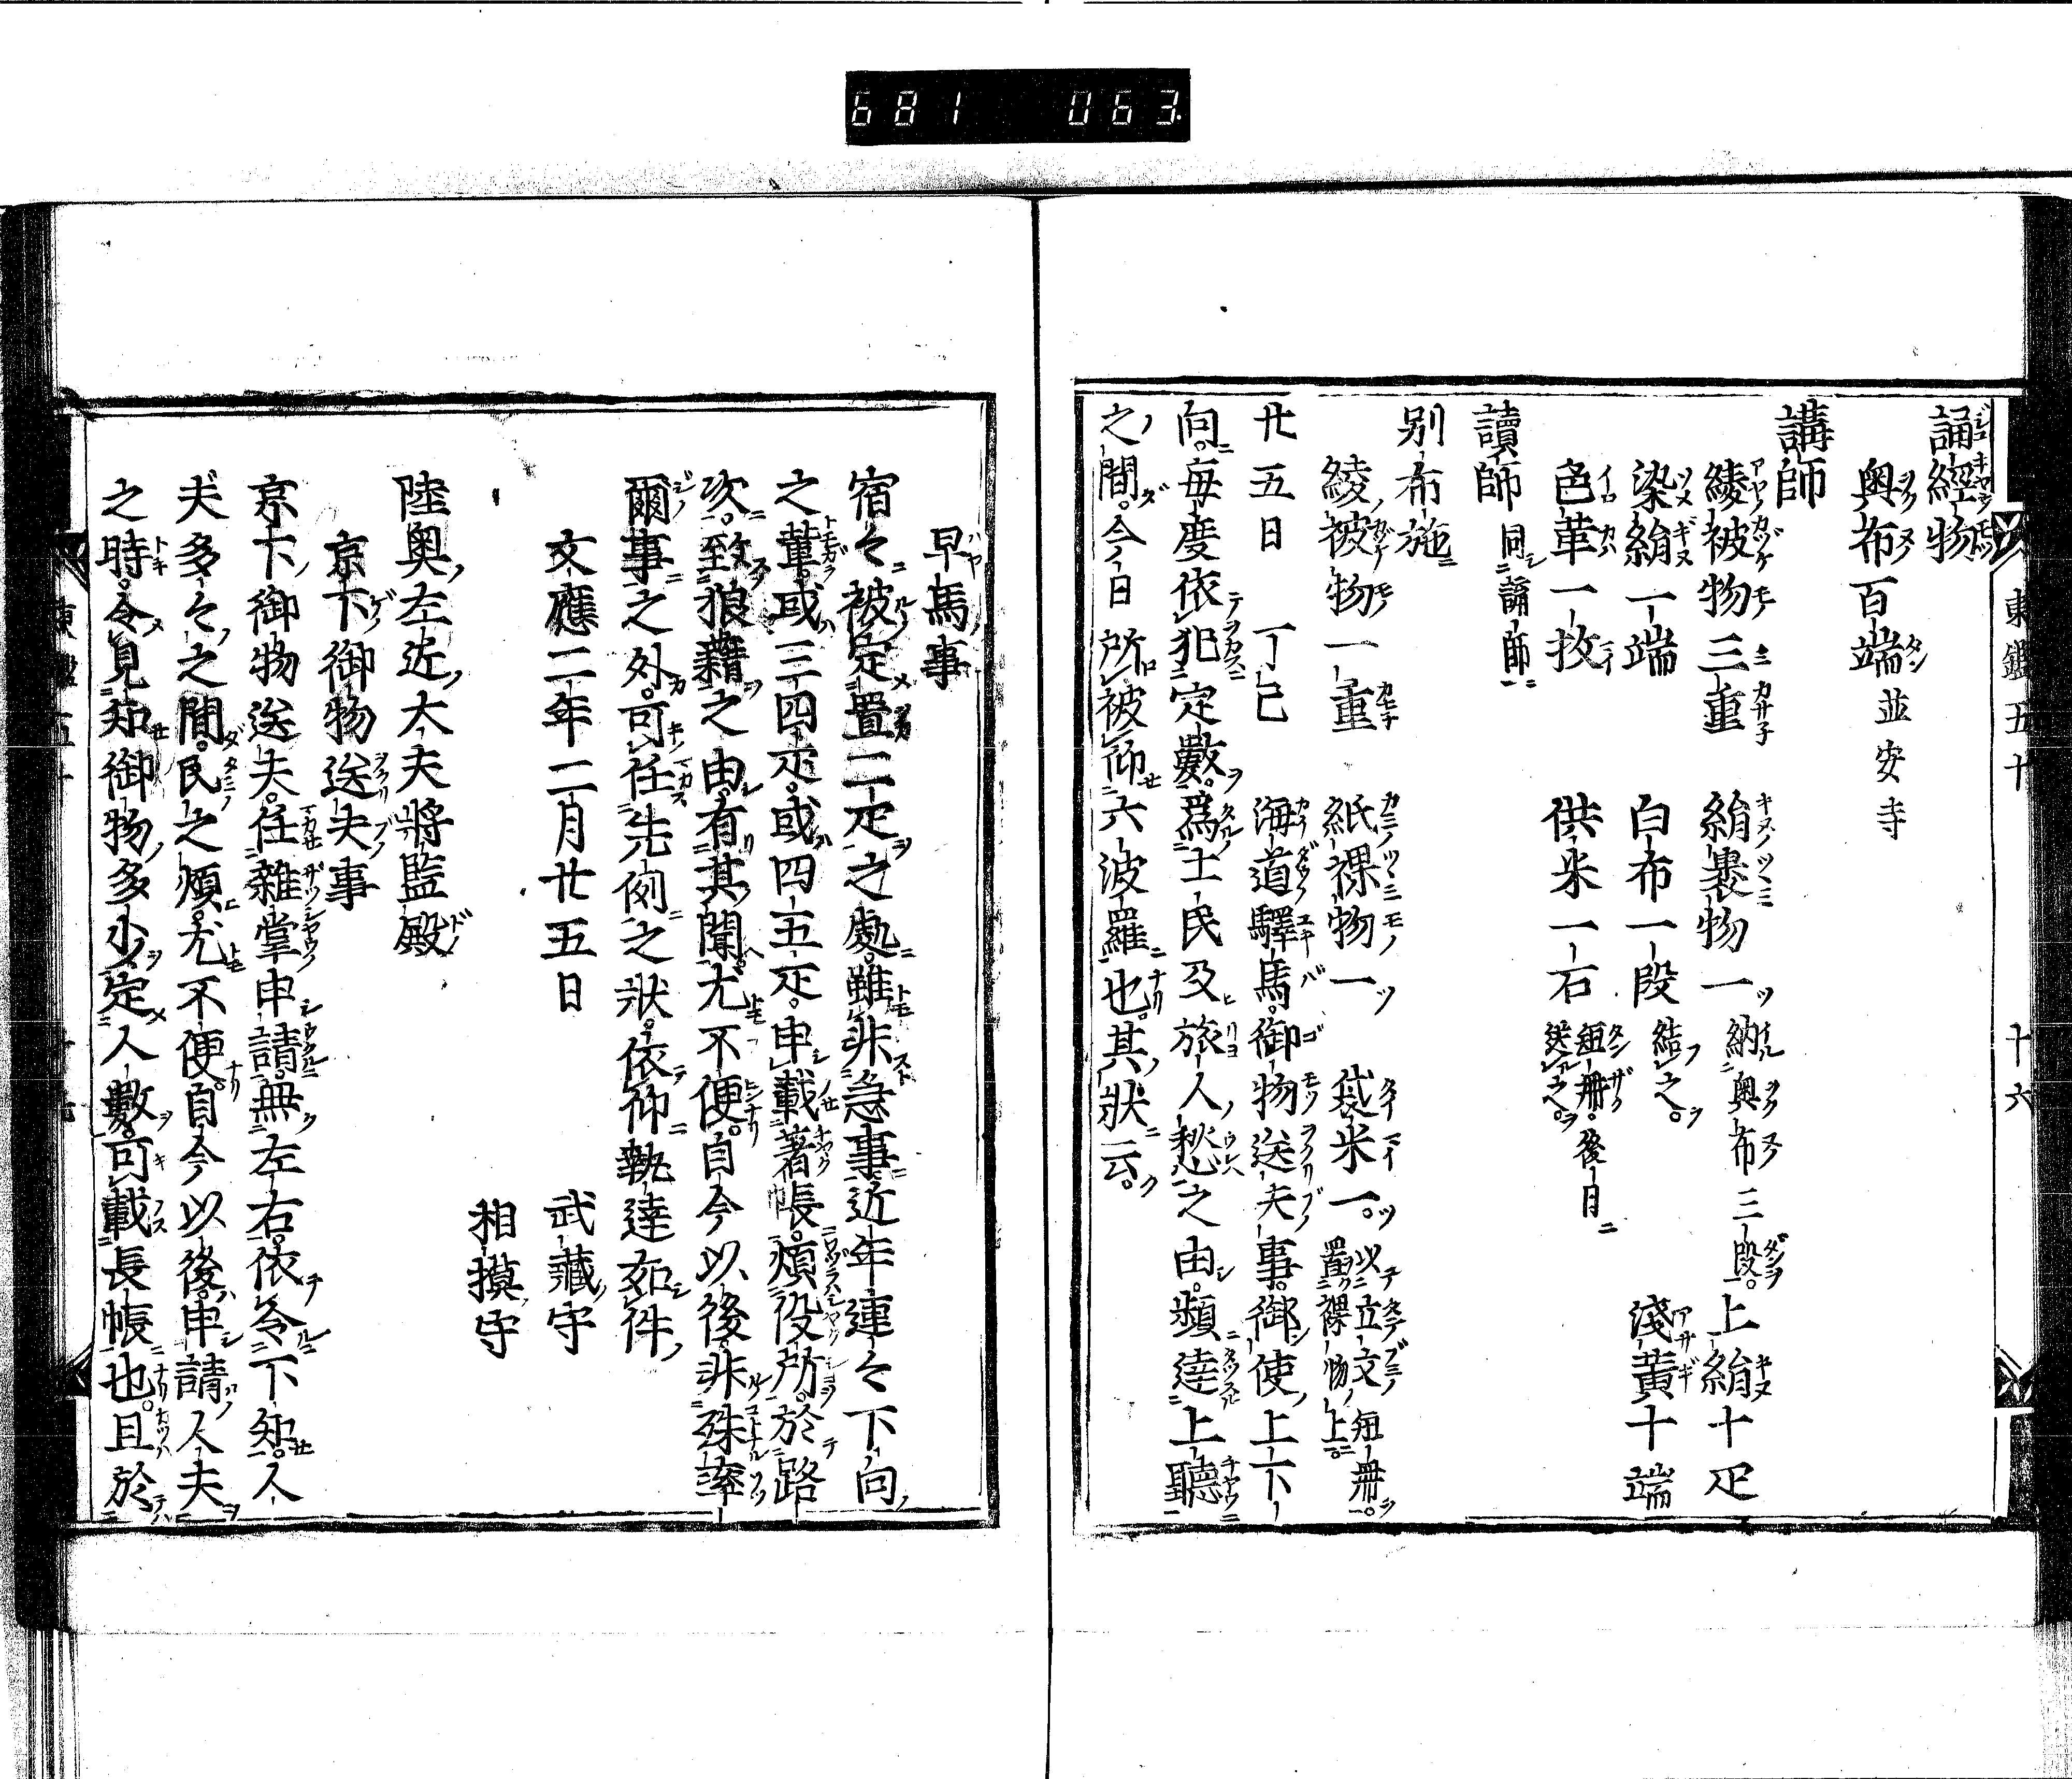 681 063.
東鑑五十 十六
誦經物
奥布百端 並安寺
講師
綾被物三重 絹裹物一 納奥布三段。 上絹十疋
染絹一端 白布一段 結之。 淺黄十端
色革一枚 供米一石 短冊。後日送之。
讀師 同誦師
別布施
綾被物一重 紙裸物一 袋米一。 以立文短冊。置裸物上。
廿五日 丁巳 海道驛馬。御物送夫事。御使上下
向。毎度依犯定數。爲土民及旅人愁之由。頻達上聽
之間。今日所被仰六波羅也。其狀云。
早馬事
宿々被定置二疋之處。雖非急事近年連々下向
之輩。或三四疋。或四五疋。申載著帳。煩役所。於路
次。致狼藉之由。有其聞。尤不便。自今以後。非殊率
爾事之外。可任先例之狀。依仰執達如件
文應二年二月廿五日 武藏守
相摸守
陸奥左近大夫將監殿
京下御物送夫事
京下御物送夫。任雜掌申請。無左右。依令下知。人
夫多々之間。民之煩。尤不便。自今以後。申請人夫
之時。令見知御物多少。定人數。可載長帳也。且於